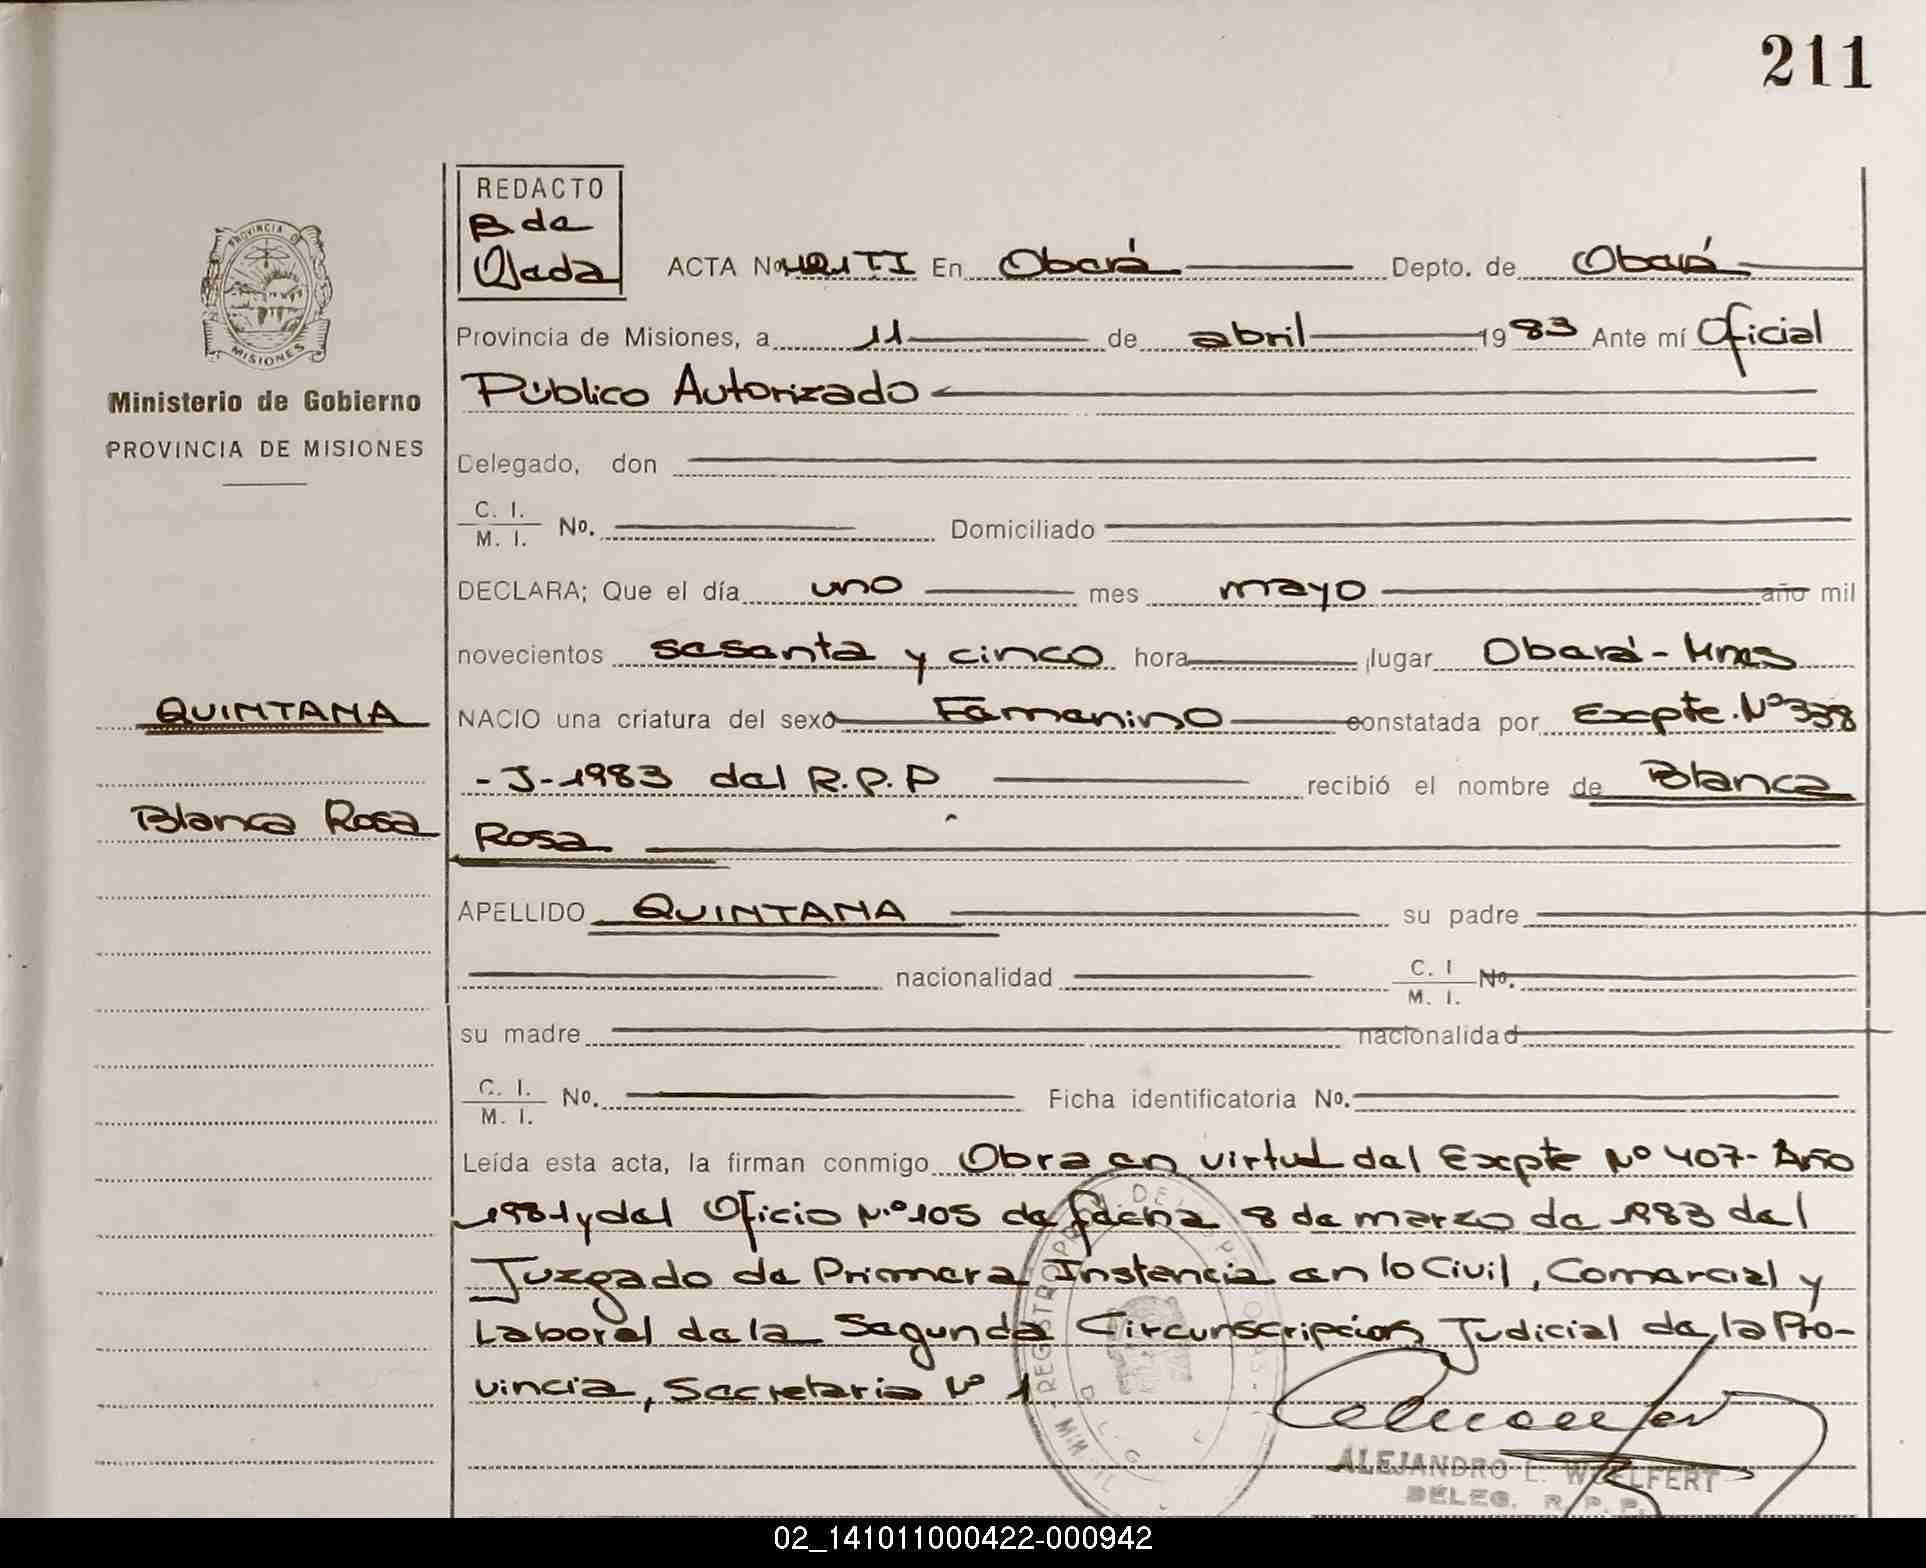 211
REDACTO
B. de
Ojeda
PROVINCIA DE
MISIONES
Ministerio de Gobierno
PROVINCIA DE MISIONES
ACTA No. TI En Oberá Depto. de Oberá
Provincia de Misiones, a 11 de abril 1983 Ante mí Oficial
Público Autorizado
Delegado, don
C. I.
M. I. No. Domiciliado
DECLARA; Que el día uno mes mayo año mil
novecientos sesenta y cinco hora lugar Oberá - Mnes
QUINTANA
NACIO una criatura del sexo Femenino constatada por Expte. Nº 338
- J - 1983 del R.P.P recibió el nombre de Blanca
Blanca Rosa
Rosa
APELLIDO QUINTANA su padre
nacionalidad C. I
M. I. No.
su madre nacionalidad
C. I.
M. I. No. Ficha identificatoria No.
Leída esta acta, la firman conmigo Obra en virtud del Expte Nº 407 - Año
1981 y del Oficio N.º 105 de fecha 8 de marzo de 1983 del
Juzgado de Primera Instancia en lo Civil, Comercial y
Laboral de la Segunda Circunscripción Judicial de la Pro-
vincia, Secretaria Nº 1
ALEJANDRO L. WELFERT
DELEG. R. P. P.
02_141011000422-000942